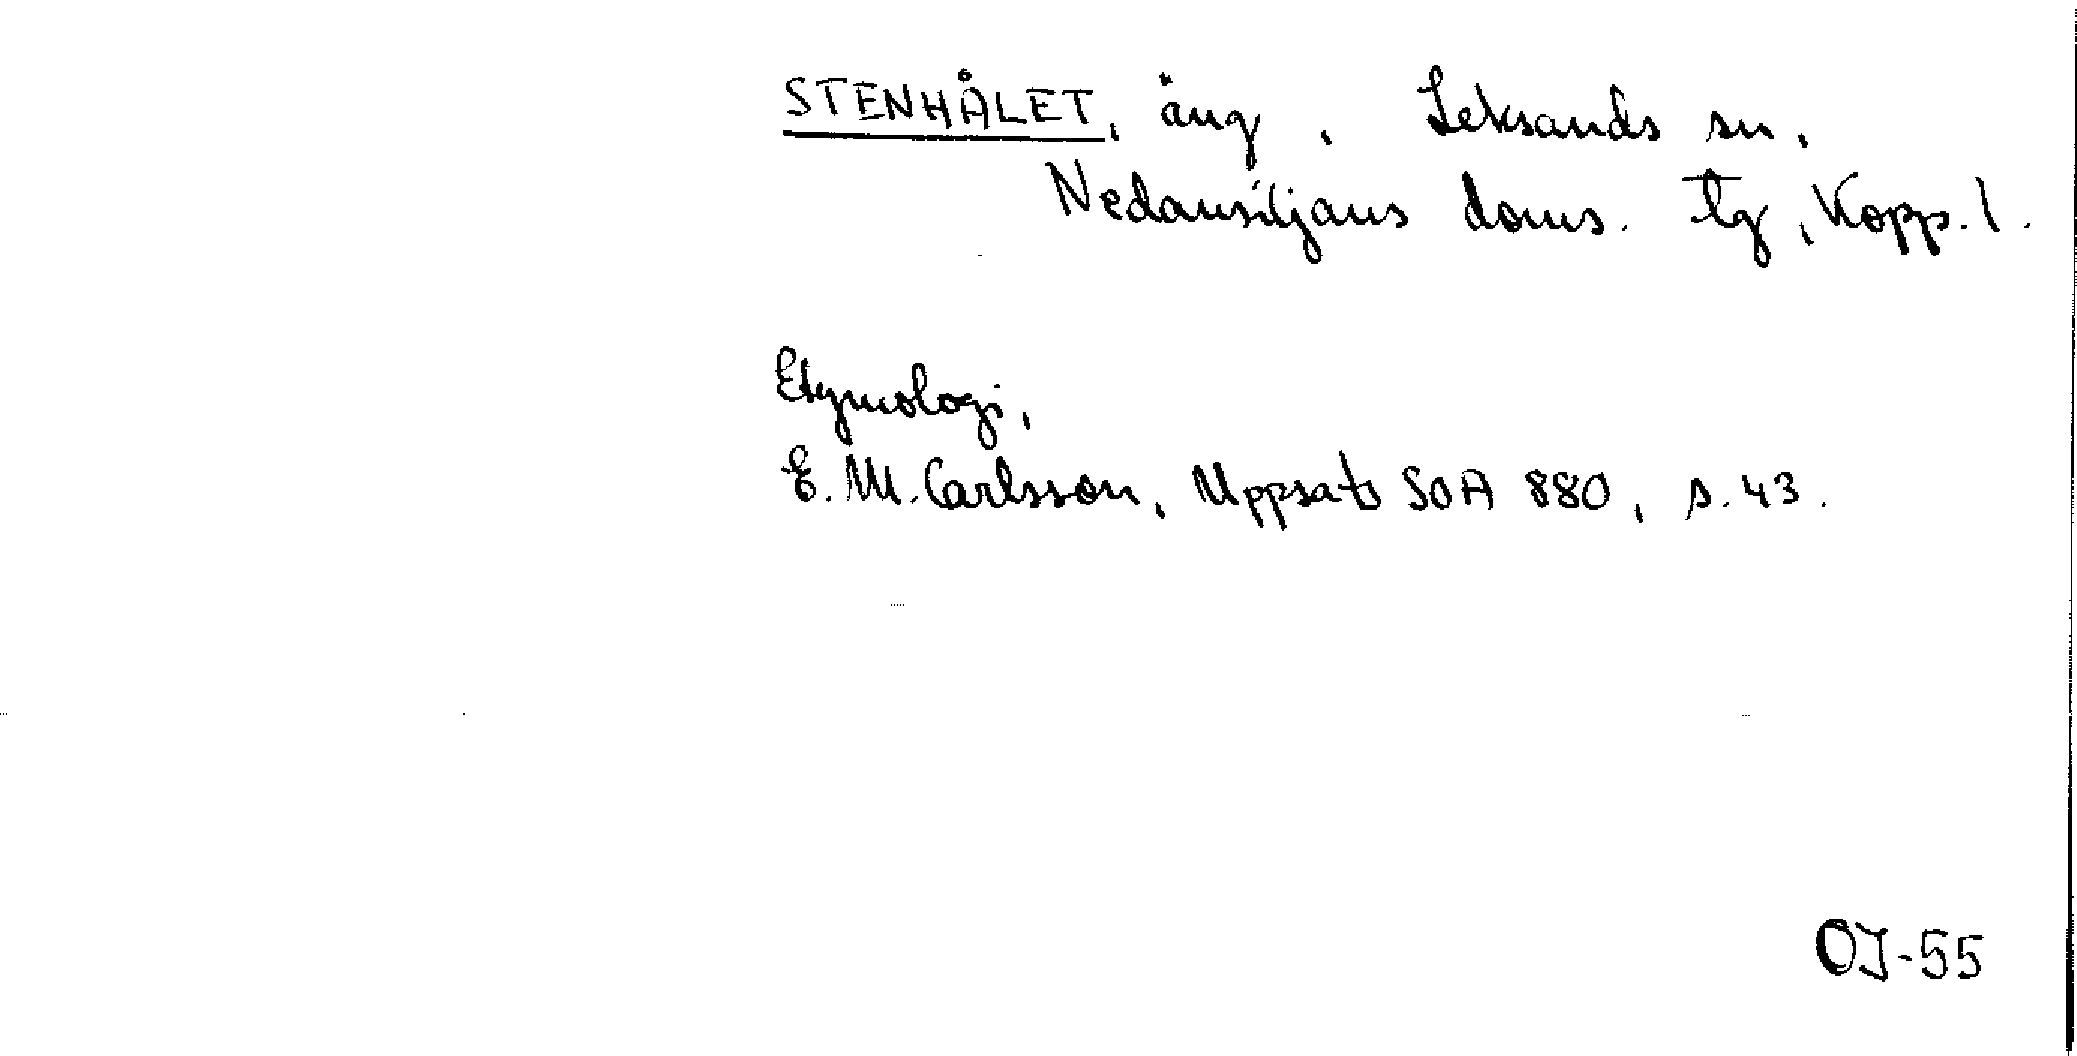 STENHÅLET, äng, Leksands sn,
Nedansiljans doms. tg, Kopp. l.
Etymologi,
E. M. Carlsson, Uppsats SOA 880, s. 43.
OJ-55